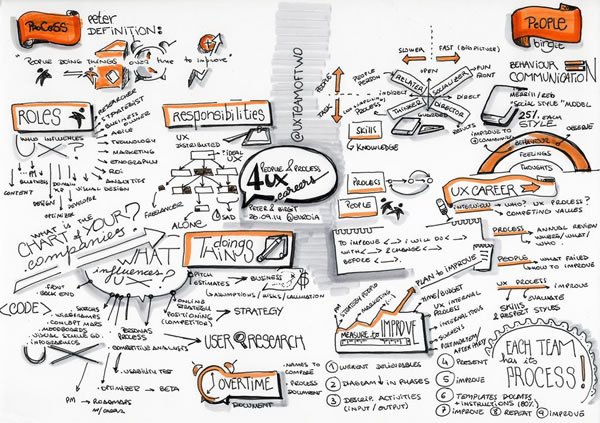 PROCESS
peter
DEFINITION:
"PEOPLE DOING THINGS over time to improve"
ROLES
RESEARCHER
STRATEGIST
BUSINESS OWNER
AGILE
TECHNOLOGY
MARKETING
ETHNOGRAPH
ROI
ANALYTICS
VISUAL DESIGN
WHO INFLUENCES
UX?
PM
BUSINESS
CONTENT
DOMAIN
DESIGN
DEVELOPER
OPTIMIZER
RESPONSIBILITIES
UX
DISTRIBUTED
IDEAL
UX
FREELANCER
ALONE
SAD
@UXTEAMOFTWO
4UX
PEOPLE & PROCESS
careers
PETER & BIRGIT
26.09.14
WHAT IS THE
CHART OF YOUR
companies?
WHAT
influences
UX
doing
THINGS
PITCH
ESTIMATES
BUSINESS
ASSUMPTIONS / RISKS / CALCULATION
ONLINE
STRATEGIC
POSITIONING
(COMPETITOR)
STRATEGY
USER RESEARCH
CODE
FRONT
BACK END
SKETCHS
WIREFRAMES
CONCEPT MAPS
MOODBOARDS
INFOGRAPHICS
UX
PERSONAS
PROCESS
COMPETITIVE ANALYSES
USABILITY TEST
OPTIMIZER
BETA
PM
ROADMAPS
OVERTIME
DOCUMENT
NAMES TO
COMPARE
PROCESS
DOCUMENT
PEOPLE
birgit
SLOWER
FAST (BIG PICTURE)
PEOPLE
TASK
PEOPLE
PERSON
OPEN
RELATER
SOCIALIZER
FUN
FRONT
INDIRECT
DIRECT
THINKER
DIRECTOR
GUARDED
RESULTS
BEHAVIOUR
COMMUNICATION
MERRILL/REID
"SOCIAL STYLE" MODEL
25% EACH
STYLE
IMPROVE TO
COMMUNICATE
OBSERVE
BEHAVIOUR
FEELINGS
THOUGHTS
SKILLS
KNOWLEDGE
PROCESS
PEOPLE
UX CAREER
INTERVIEW
WHO? UX PROCESS?
COMPETING VALUES
PROCESS
ANNUAL REVIEW
WHERE/WHAT/
WHO
PEOPLE
WHAT FAILED
HOW TO IMPROVE
UX PROCESS
IMPROVE
EVALUATE
SKILLS
& RESPECT STYLES
TO IMPROVE <...> I WILL DO <...>
WITH <...> & CHANGE <...>
BEFORE <...>
PLAN TO IMPROVE
STRATEGY
MARKETING
TIME/BUDGET
UX INTERNAL
PROCESS
INTERNAL TOOLS
SUCCESS
POSTMORTEM
AFTERPARTY
MEASURE to IMPROVE
1 UX DELIVERABLES
2 DIAGRAM IN PHASES
3 DESCRIP. ACTIVITIES
(INPUT / OUTPUT)
4 PRESENT
5 IMPROVE
6 TEMPLATES
+ INSTRUCTIONS (80%)
7 IMPROVE 8 REPEAT 9 IMPROVE
EACH TEAM
has its
PROCESS!